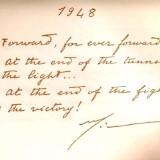 1948
Forward, for ever forward
At the end of the tunne
the light...
At the end of the fig
the victory!